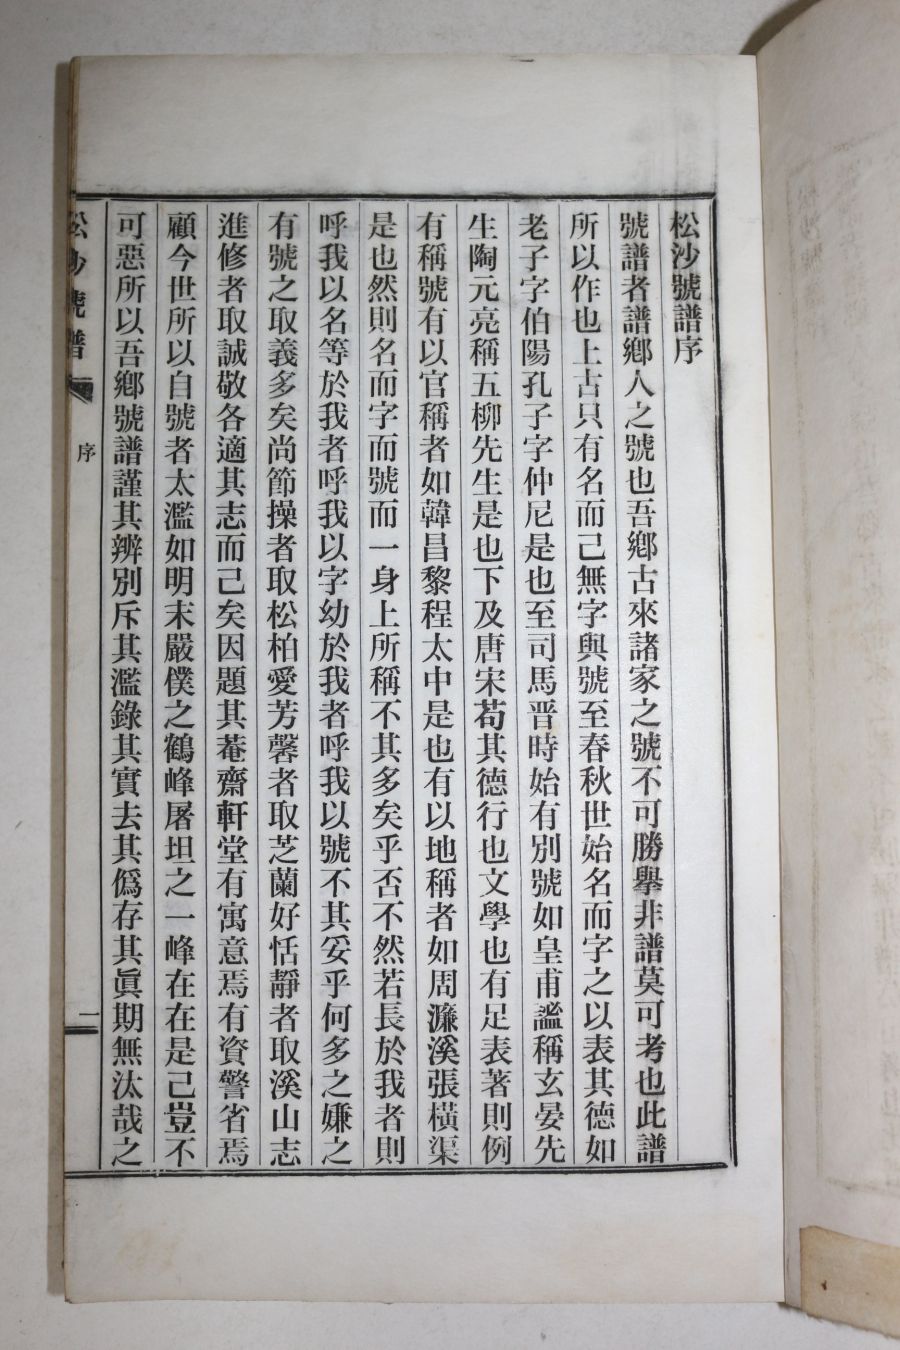 松沙號譜序
號譜者譜鄕人之號也吾鄕古來諸家之號不可勝擧非譜莫可考也此譜
所以作也上古只有名而己無字與號至春秋世始名而字之以表其德如
老子字伯陽孔子字仲尼是也至司馬晋時始有別號如皇甫謐稱玄晏先
生陶元亮稱五柳先生是也下及唐宋苟其德行也文學也有足表著則例
有稱號有以官稱者如韓昌黎程太中是也有以地稱者如周濂溪張橫渠
是也然則名而字而號而一身上所稱不其多矣乎否不然若長於我者則
呼我以名等於我者呼我以字幼於我者呼我以號不其妥乎何多之嫌之
有號之取義多矣尚節操者取松柏愛芳馨者取芝蘭好恬靜者取溪山志
進修者取誠敬各適其志而己矣因題其菴齋軒堂有寓意焉有資警省焉
顧今世所以自號者太濫如明末嚴僕之鶴峰屠坦之一峰在在是己豈不
可惡所以吾鄕號譜謹其辨別斥其濫錄其實去其僞存其眞期無汰哉之
松沙號譜
序
一